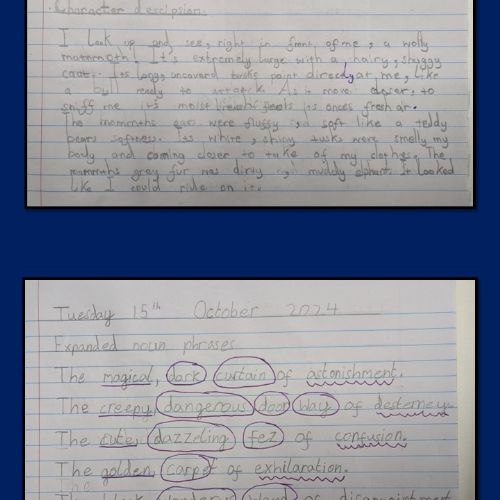 Character descripsion.
I look up and see, right in front of me, a wolly
mammoth! It's extremely large with a hairy, shaggy
coat. Its long, uncoverd tusks point directly at me, like
a bull ready to attatck. As is move closer, to
sniff me its moist feels its onces fresh air.
The mommths ears were fluffy, soft like a teddy
bears softness. Its white, shiny tusks were smelly my
body and coming closer to take of my clothes. The
mammths grey fur was dirty muddy It looked
like I could ride on it.
Tuesday 15th October 2024
Expanded noun phrases
The magical, dark curtain of astonishment.
The creepy, dangerous door way of desteney.
The cute, dazzeling fez of confusion.
The golden, carpet of exhilaration.
The of disappointment